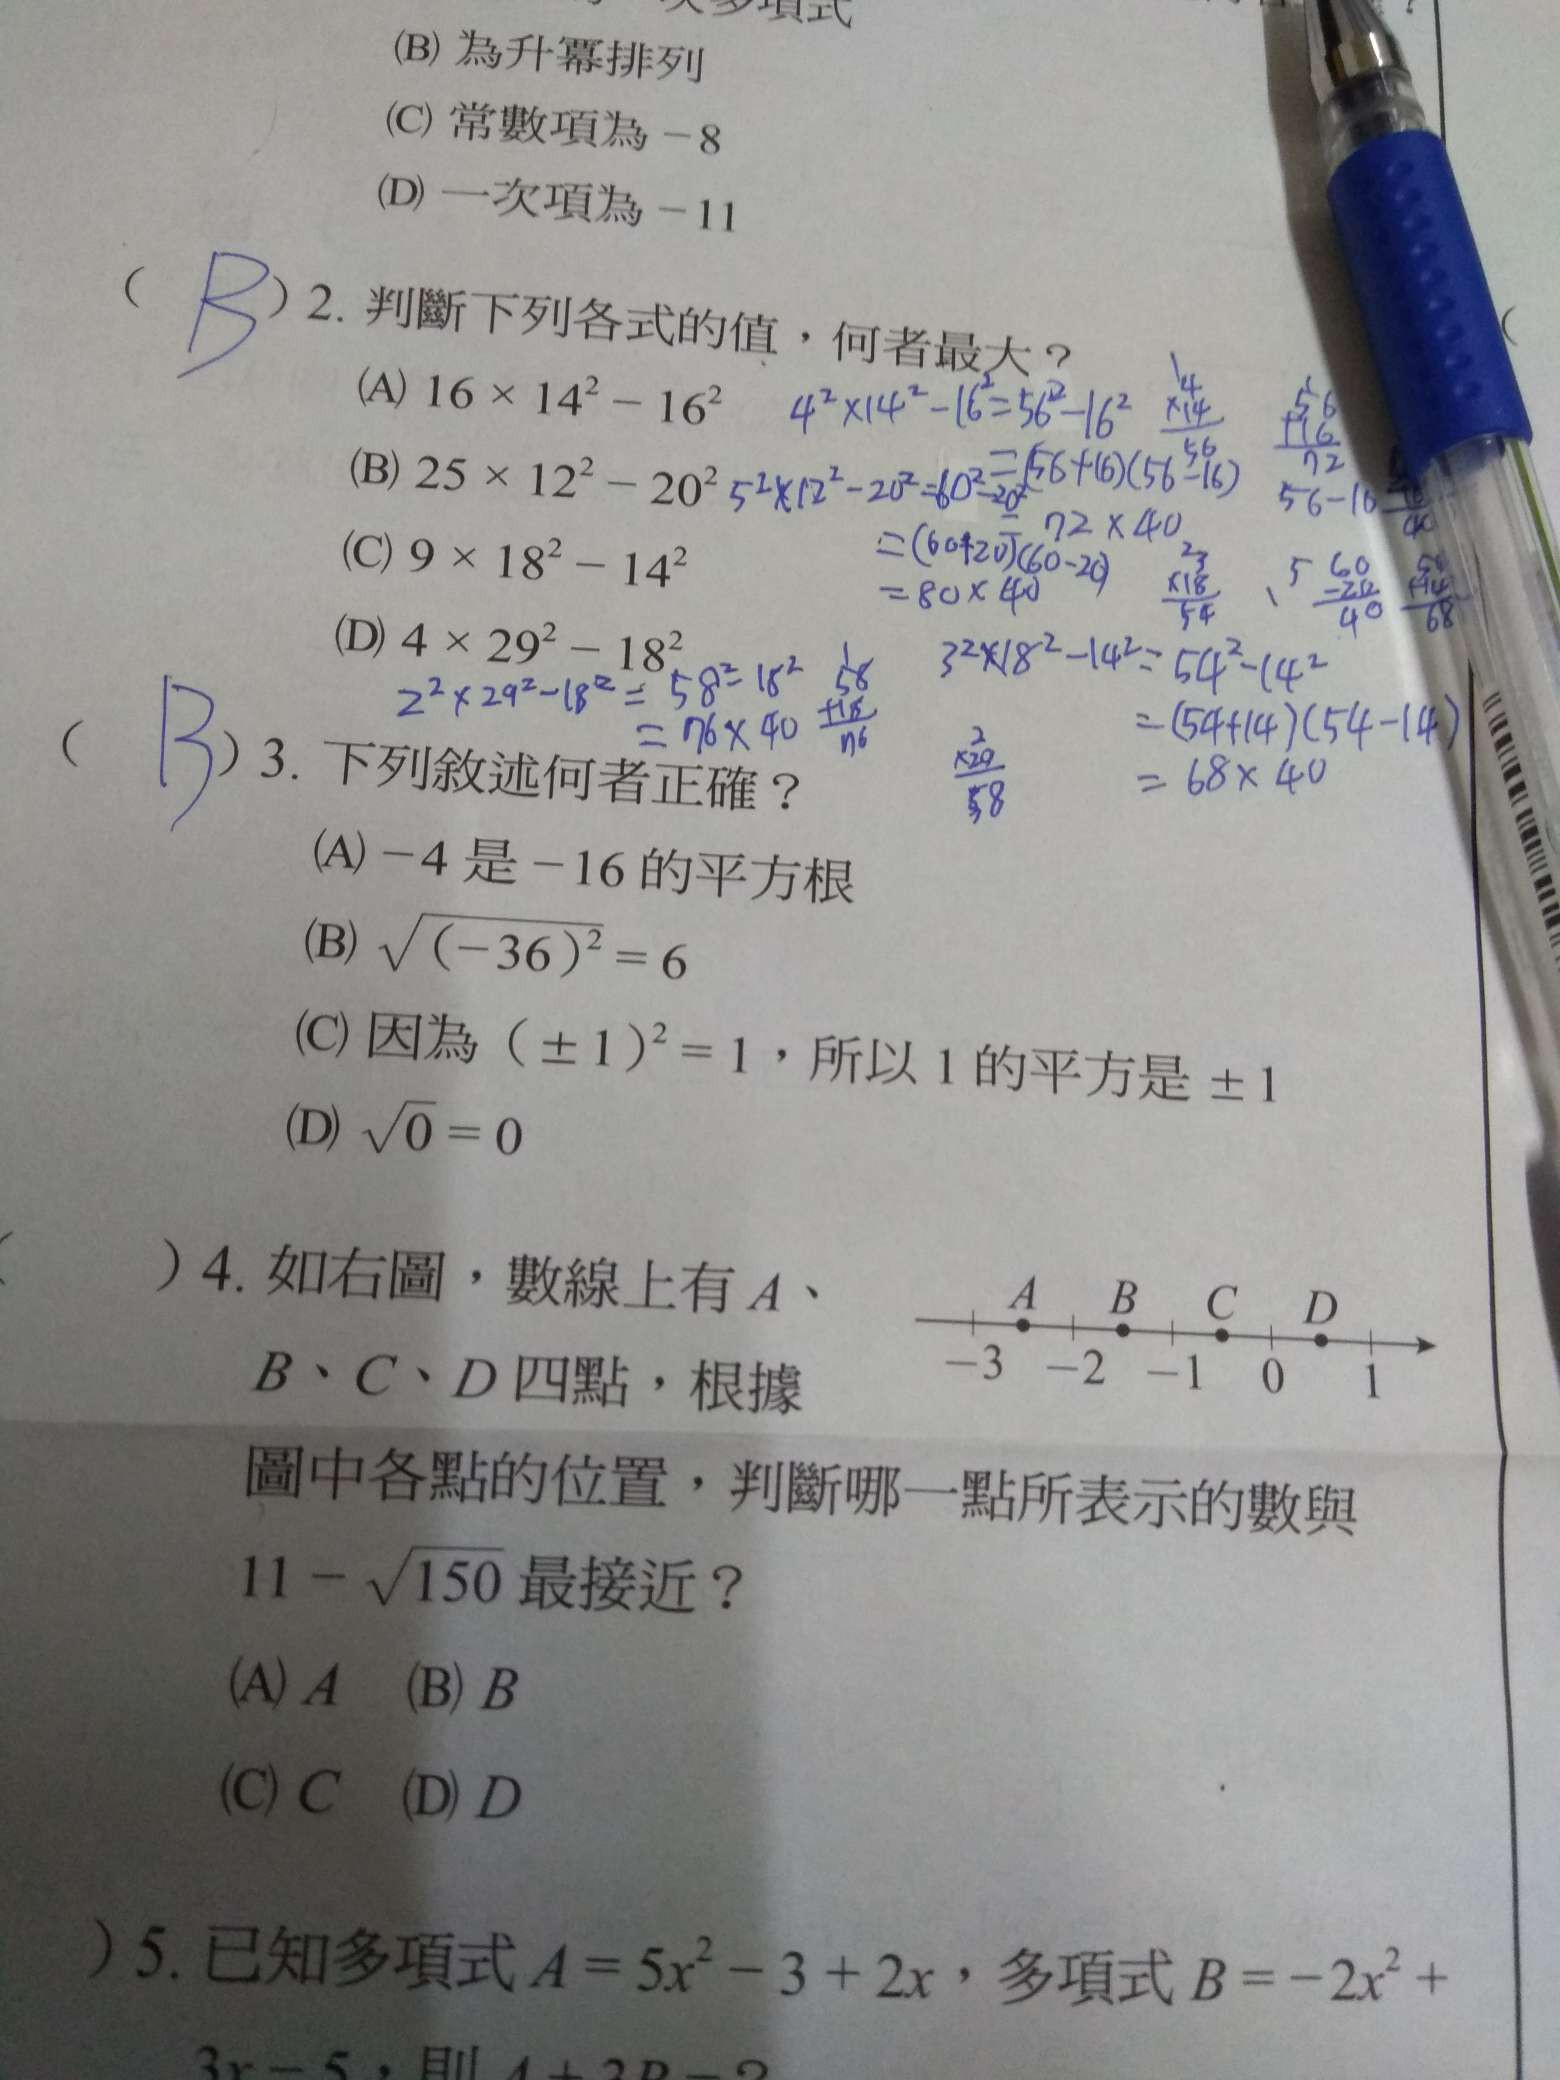 次多項式
(B) 為升冪排列
(C) 常數項為 −8
(D) 一次項為 −11
( B ) 2. 判斷下列各式的值，何者最大？
(A) 16 × 14² − 16²
4²×14²−16²=56²−16²
=(56+16)(56−16)
=72×40
(B) 25 × 12² − 20²
5²×12²−20²=60²−20²
=(60+20)(60−20)
=80×40
(C) 9 × 18² − 14²
3²×18²−14²=54²−14²
=(54+14)(54−14)
=68×40
(D) 4 × 29² − 18²
2²×29²−18²=58²−18²
=76×40
14
×14
56
56
56
+16
72
56−16
40
×18
54
60
−20
40
+14
68
58
+18
76
2
×29
58
( B ) 3. 下列敘述何者正確？
(A) −4 是 −16 的平方根
(B) √(−36)² = 6
(C) 因為（±1）² = 1，所以 1 的平方是 ±1
(D) √0 = 0
( ) 4. 如右圖，數線上有 A、
B、C、D 四點，根據
圖中各點的位置，判斷哪一點所表示的數與
11 − √150 最接近？
A B C D
−3 −2 −1 0 1
(A) A (B) B
(C) C (D) D
) 5. 已知多項式 A = 5x² − 3 + 2x，多項式 B = −2x² +
3x − 5，則